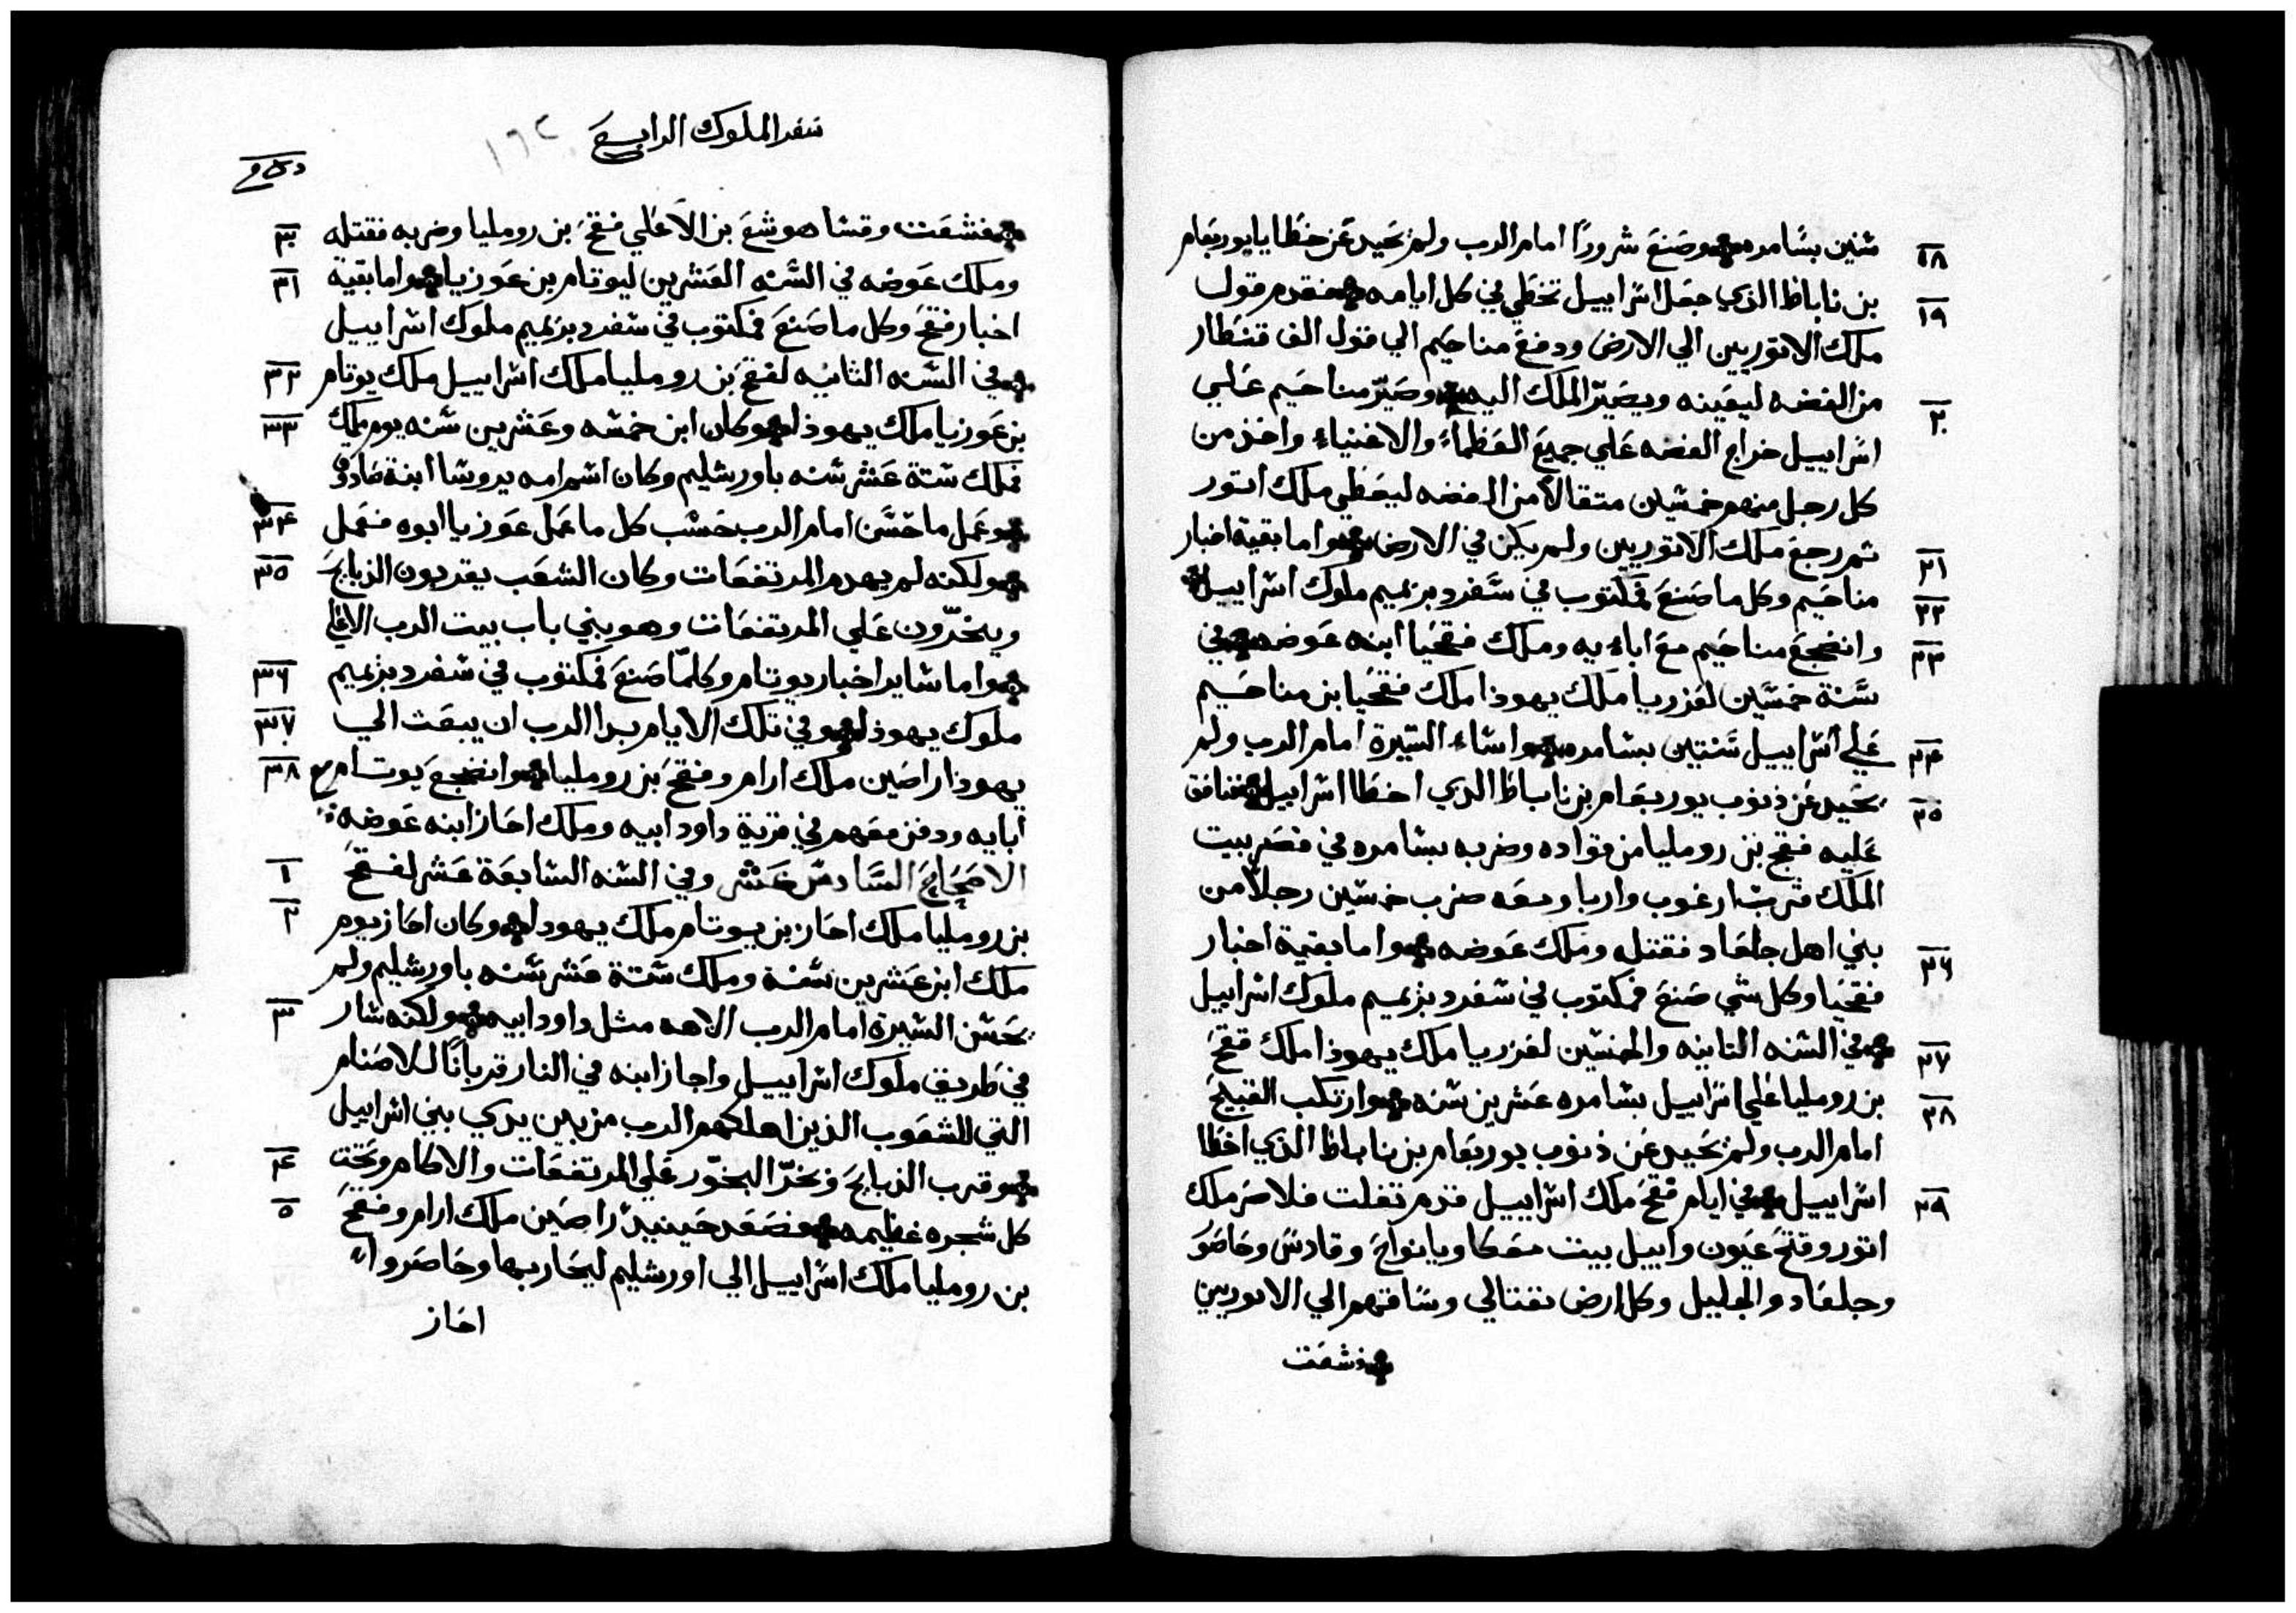 ١٨ سنين بسامره وصنع شروراً امام الرب ولم يحيد عن خطايا يوربعام
١٩ بن ناباط الذي جعل اسراييل تخطي في كل ايامه فقدم فول
ملك الاتوريين الي الارض ودفع مناحيم الي فول الف قنطار
٢٠ من الفضه ليعينه ويصيّر الملك اليه وصيّر مناحيم علي
اسراييل خراج الفضه علي جميع العظماء والاغنياء واخذ من
كل رجل منهم خمسين متقالاً من الفضه ليعطي ملك اتور
٢١ تم رجع ملك الاتوريين ولم يكن في الارض واما بقية اخبار
٢٢ مناحيم وكل ما صنع فمكتوب في سفر دبرىميم ملوك اسراييل
٢٣ وانضجع مناحيم مع اباءيه وملك فقحيا ابنه عوضه في
سنة خمسين لعزريا ملك يهوذا ملك فقحيا بن مناحيم
٢٤ علي اسراييل سنتين بسامره واساء السيرة امام الرب ولم
٢٥ يحيد عن ذنوب يوربعام بن ناباط الذي اخطا اسراييل فنافق
عليه فقح بن رومليا من قواده وضربه بسامره في قصر بيت
الملك قرب ارغوب واربا ومعه ضرب خمسين رجلاً من
٢٦ بني اهل جلعاد فقتله وملك عوضه واما بقية اخبار
فقحيا وكل شي صنع فمكتوب في سفر دبرىميم ملوك اسراييل
٢٧ في السنه التانيه والخمسين لعزريا ملك يهوذا ملك فقح
٢٨ بن رومليا علي اسراييل بسامره عشرين سنه وارتكب القبيح
امام الرب ولم يحيد عن ذنوب يوربعام بن ناباط الذي اخطا
٢٩ اسراييل في ايام فقح ملك اسراييل قدم تغلت فلاصر ملك
اتور وفتح عيون وابيل بيت معكا ويانواح وقادس وحاصو
وجلعاد والجليل وكل ارض نفتالي وساقهم الي الاتوريين
فشعت
سفر الملوك الرابع ١٦٢
٣٠ فشعت وقسا هوشع بن الاعلي فقح بن رومليا وضربه فقتله
٣١ وملك عوضه في السنه العشرين ليوتام بن عوزيا واما بقية
اخبار فقح وكل ما صنع فمكتوب في سفر دبرىميم ملوك اسراييل
٣٢ في السنه الثانيه لفقح بن رومليا ملك اسراييل ملك يوتام
٣٣ بن عوزيا ملك يهوذا وكان ابن خمسه وعشرين سنه يوم ملك
فملك ستة عشر سنه باورشليم وكان اسم امه يروشا ابنة صادوق
٣٤ وعمل ما حسن امام الرب حسب كل ما عمل عوزيا ابوه فعمل
٣٥ ولكنه لم يهدم المرتفعات وكان الشعب يقربون الذبايح
ويبخّرون علي المرتفعات وهو بني باب بيت الرب الاعلي
٣٦ واما ساير اخبار يوتام وكلمّا صنع فمكتوب في سفر دبرىميم
٣٧ ملوك يهوذا وفي تلك الايام بدا الرب ان يبعث الي
٣٨ يهوذا راصين ملك ارام وفقح بن رومليا وانضجع يوتام مع
ابايه ودفن معهم في قرية داود ابيه وملك احاز ابنه عوضه
١ الاصحاح السادس عشر وفي السنه السابعة عشر لفقح
٢ بن رومليا ملك احاز بن يوتام ملك يهودا وكان احاز يوم
ملك ابن عشرين سنة وملك ستة عشر سنه باورشليم ولم
٣ يحسن السيرة امام الرب الاهه مثل داود ابيه ولكنه سار
في طريق ملوك اسراييل واجاز ابنه في النار قرباناً للاصنام
التي للشعوب الذين اهلكهم الرب من بين يدي بني اسراييل
٤ وقرب الذبايح وبخرّ البخّور علي المرتفعات والاكام وتحت
٥ كل شجره عظيمه فصعد حينيدٍ راصين ملك ارام وفقح
بن رومليا ملك اسراييل الي اورشليم ليحاربها وحاصروا
احاز